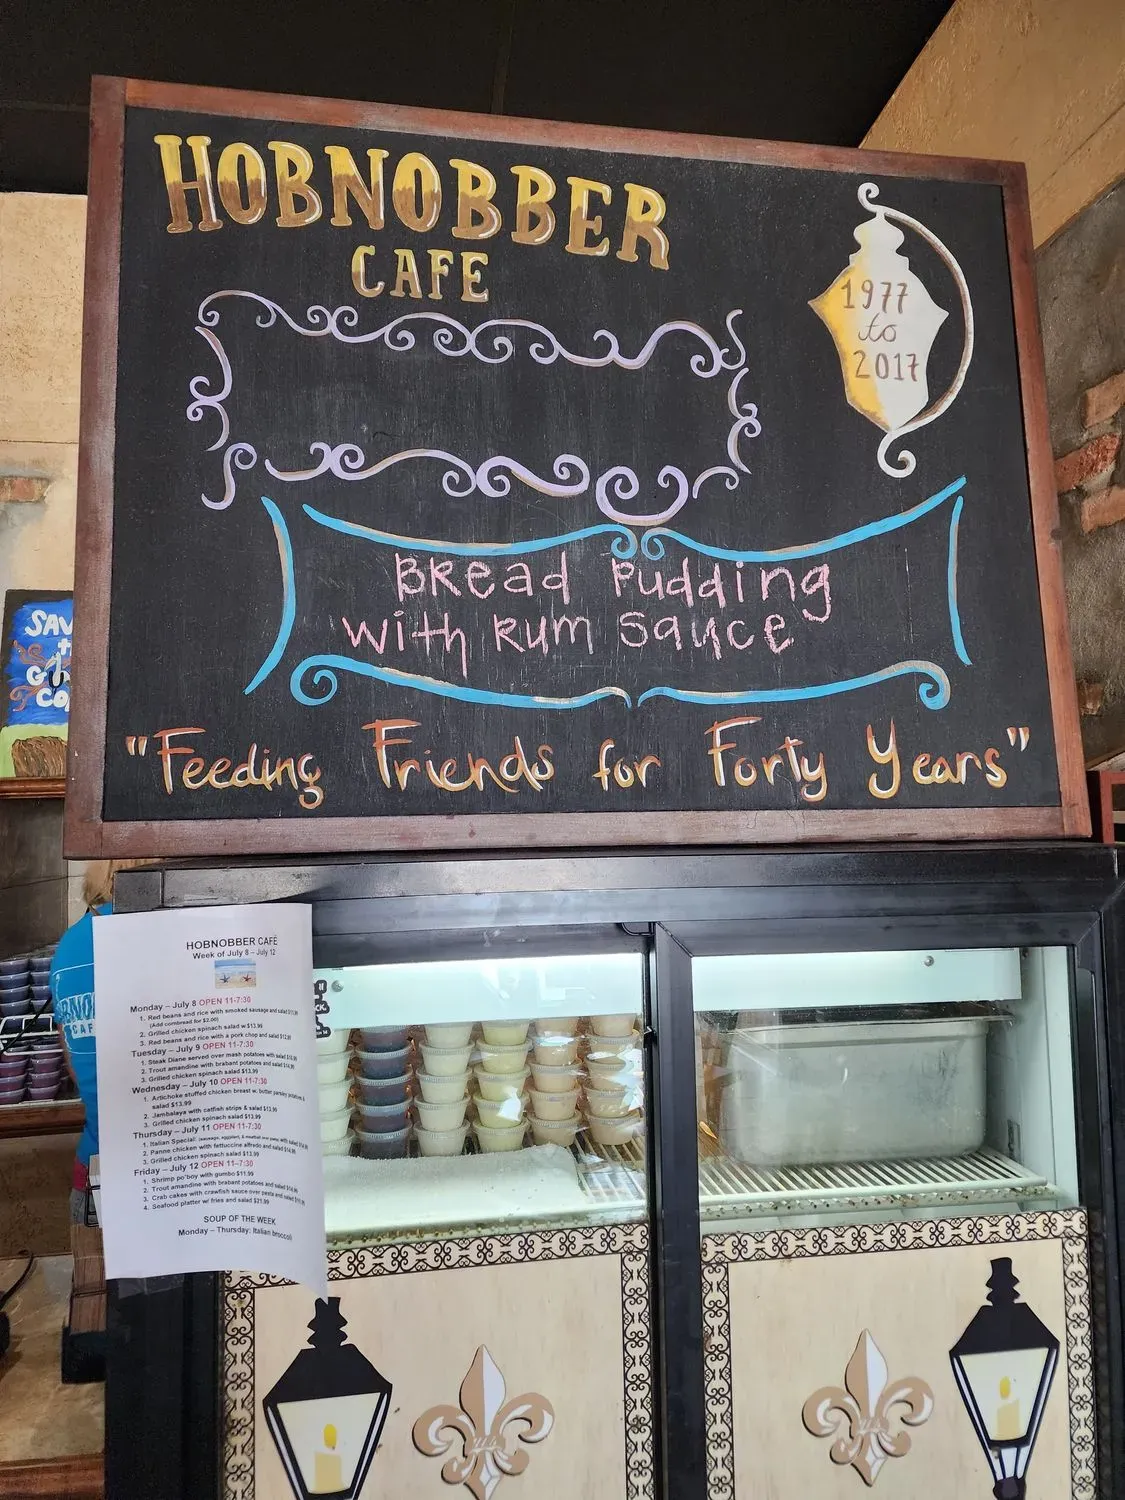 HOBNOBBER
CAFE
1977
to
2017
Bread Pudding
with Rum Sauce
"Feeding Friends for Forty Years"
SAV
HOBNOBBER CAFÉ
Week of July 8 – July 12
Monday – July 8 OPEN 11-7:30
1. Red beans and rice with smoked sausage and salad
(Add cornbread for $2.00)
2. Grilled chicken spinach salad w $13.99
3. Red beans and rice with a pork chop and salad
Tuesday – July 9 OPEN 11-7:30
1. Steak Diane served over mash potatoes with salad
2. Trout amandine with brabant potatoes and salad
3. Grilled chicken spinach salad $13.99
Wednesday – July 10 OPEN 11-7:30
1. Artichoke stuffed chicken breast w. butter parsley potatoes &
salad $13.99
2. Jambalaya with catfish strips & salad $13.99
3. Grilled chicken spinach salad $13.99
Thursday – July 11 OPEN 11-7:30
1. Italian Special: (sausage, eggplant, & meatball over pasta) with salad
2. Panne chicken with fettuccine alfredo and salad
3. Grilled chicken spinach salad $13.99
Friday – July 12 OPEN 11-7:30
1. Shrimp po'boy with gumbo $11.99
2. Trout amandine with brabant potatoes and salad
3. Crab cakes with crawfish sauce over pasta and salad
4. Seafood platter w/ fries and salad $21.99
SOUP OF THE WEEK
Monday – Thursday: Italian broccoli